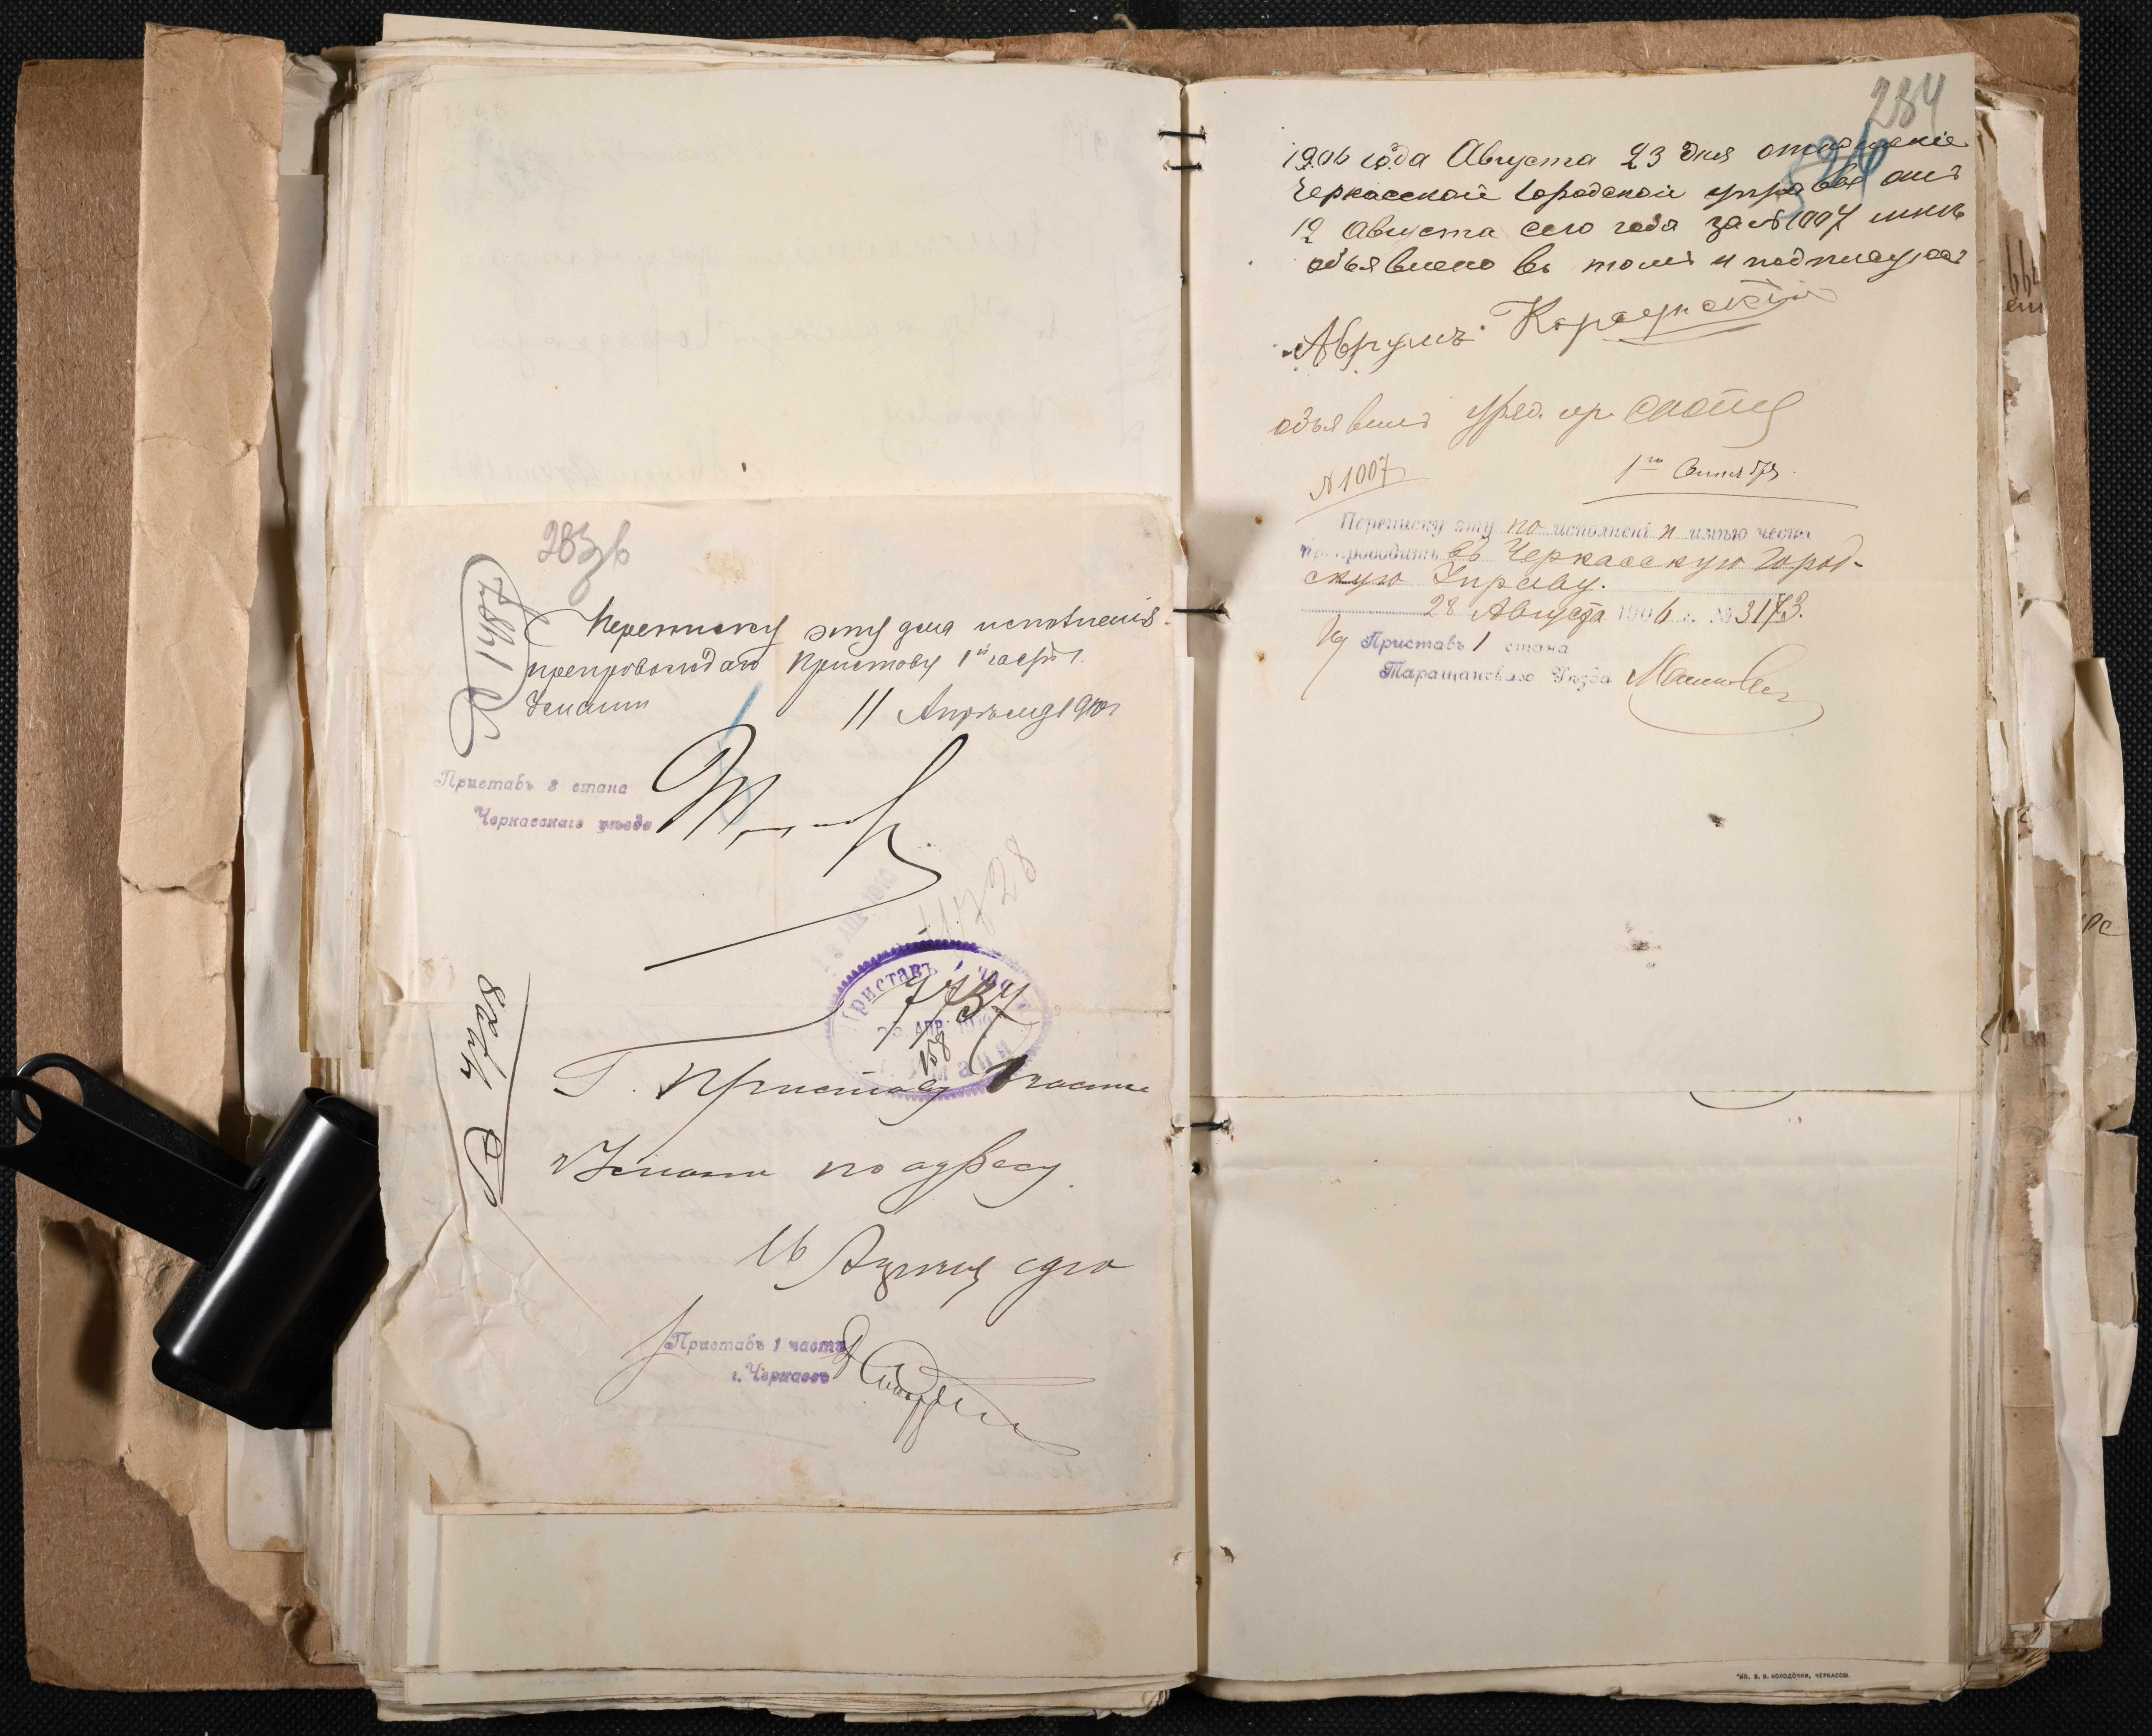 283 в
Переписку эту для исполненія
препровождаю Приставу 1й части г.
Умани
11 Апреля 1910 г
Приставъ 3 стана
Черкасскаго уѣзда
Приставъ 1 час
АПР. 1910
7737
Г. Приставу 1 части
г Умани по адресу.
16 Апрѣля 1910
Приставъ 1 части
г. Черкассъ
284
1906 года Августа 23 дня отношеніе
Черкасской Городской управы отъ
12 Августа сего года за № 1007 мнѣ
объявлено въ томъ и подписуюсь
Аврумъ Карсунскій
объявилъ уряд.
№ 1007
1го Сентября
Переписку эту по исполненіи имѣю честь
препроводить въ Черкасскую Город-
скую Управу.
28 Августа 1906 г. № 3173.
Приставъ 1 стана
Таращанскаго Уѣзда
ТИП. В. В. КОЛОДОЧКИ, ЧЕРКАССЫ.